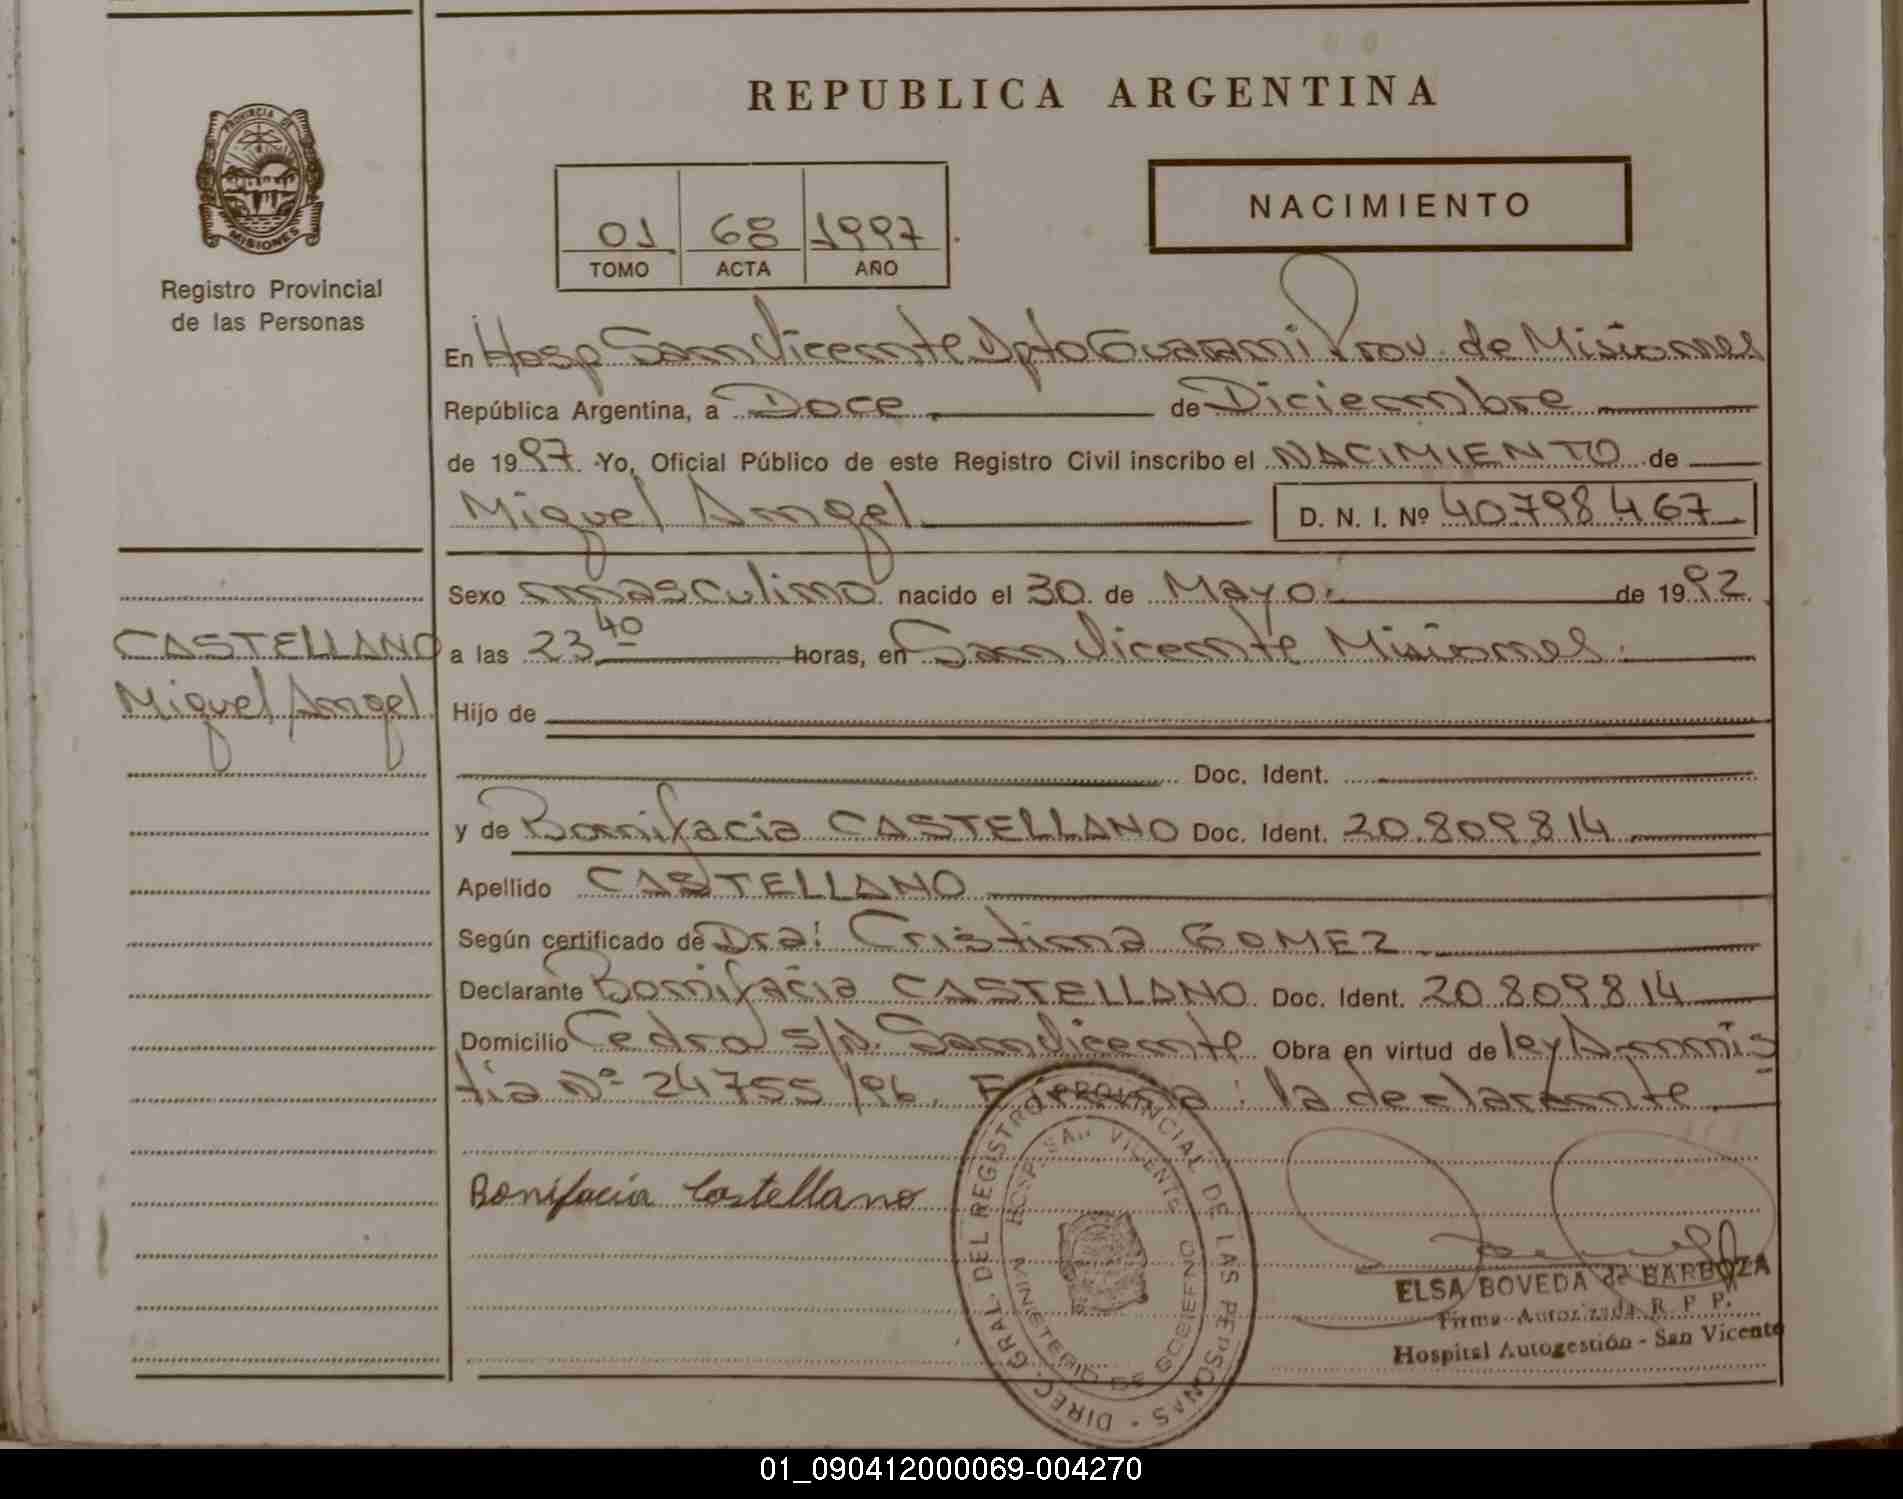 REPUBLICA ARGENTINA
PROVINCIA DE
MISIONES
Registro Provincial
de las Personas
01 68 1997
TOMO ACTA AÑO
NACIMIENTO
En Hosp San Vicente Dpto Guarani Prov. de Misiones
República Argentina, a Doce de Diciembre
de 1997. Yo, Oficial Público de este Registro Civil inscribo el NACIMIENTO de
Miguel Angel D. N. I. Nº 40798467
Sexo masculino nacido el 30 de Mayo de 1992.
CASTELLANO
Miguel Angel
a las 23 40 horas, en San Vicente Misiones
Hijo de
Doc. Ident.
y de Bonifacia CASTELLANO Doc. Ident. 20.809.814
Apellido CASTELLANO
Según certificado de Dra: Cristina GOMEZ
Declarante Bonifacia CASTELLANO Doc. Ident. 20.809.814
Domicilio Cedro s/N. San Vicente Obra en virtud de ley Amnis
tia Nº 24755/96. Firma: la declarante
Bonifacia Castellano
DIREC. GRAL. DEL REGISTRO PROVINCIAL DE LAS PERSONAS
HOSP. SAN VICENTE
MINISTERIO DE GOBIERNO
ELSA BOVEDA de BARBOZA
Firma Autorizada R. P. P.
Hospital Autogestión - San Vicente
01_090412000069-004270